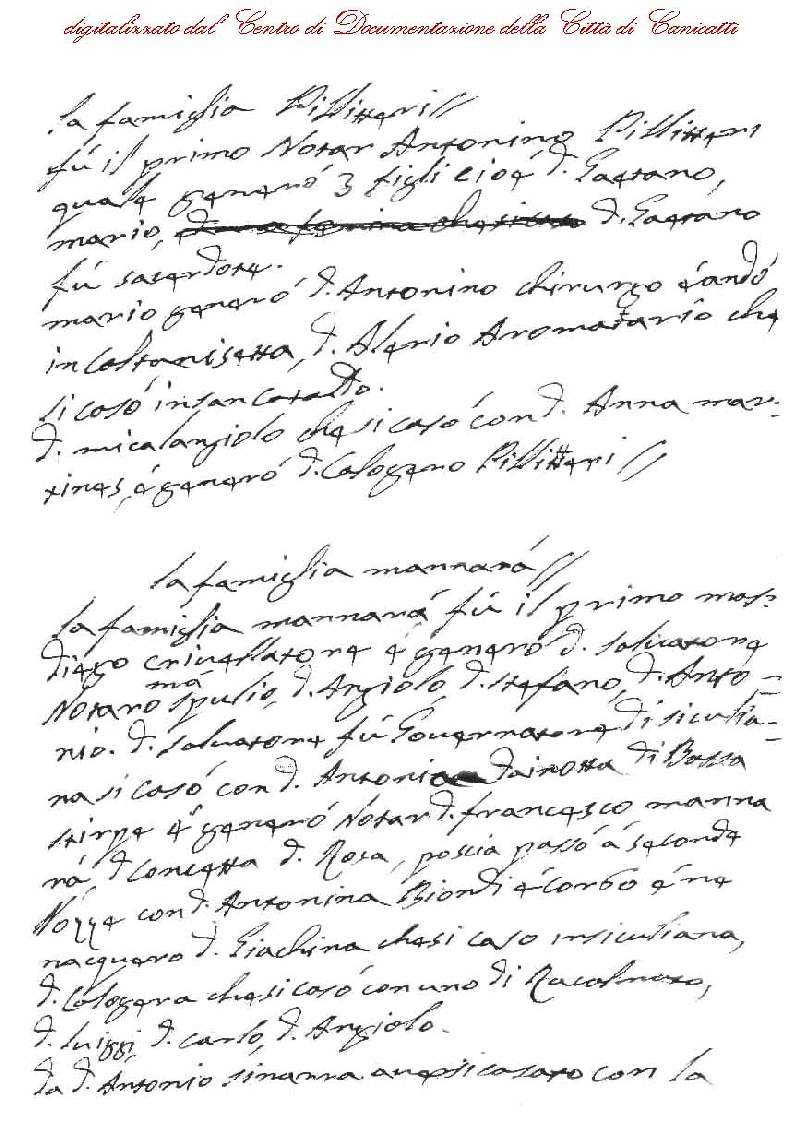 digitalizzato dal Centro di Documentazione della Città di Canicattì
la famiglia Pillitteri//
fú il primo Notar Antonino Pillitteri
quale generó 3 figli cioé d. Gaetano,
mario, d. Gaetano
fú sacerdote.
mario generó d. Antonino chirurgo é andó
in Caltanisetta, d. Alerio Aromatario che
si casó in san Cataldo.
d. micalangiolo che si casó con d. Anna mar:
tines, é generó d. Calogero Pillitteri//
la famiglia mannará//
la famiglia mannará fú il primo mas:
diego crivellatore é generó d. salvatore
Notaro má spulio, d. Angiolo, d. stefano, d. Anto=
nio. d. salvatore fú Governatore di siculia=
na si casó con d. Antonia di Bassa
stirpe é generó Notar d. francesco manna
rá, d. Concetta d. Rosa, poscia passó á seconde
Nozze con d. Antonina Biondi é Corbo é ne
nacquero d. Giachina che si caso in siculiana,
d. Calogera che si casó con uno di Racalmuto,
d. luiggi, d. carlo, d. Angiolo.
da d. Antonio con la